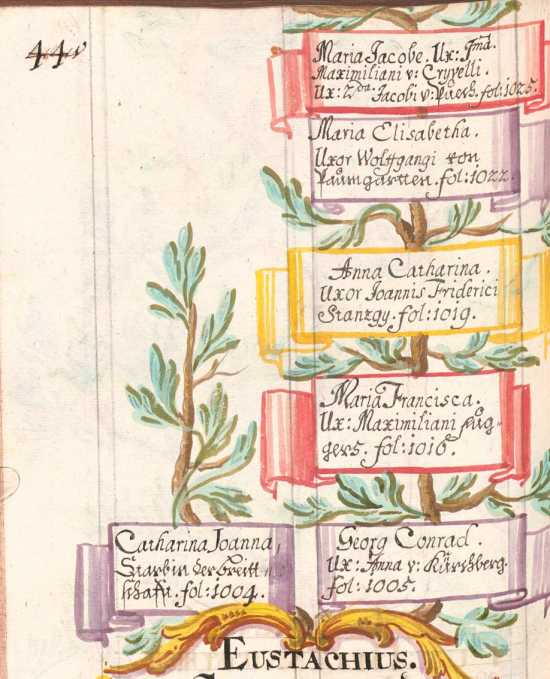 44v
Maria Jacobe. Ux: Jma.
Maximiliani v: Cryvelli.
Ux: 2da. Jacobi v: fol: 1025.
Maria Elisabetha.
Uxor Wolffgangi von
Paumgartten. fol: 1022.
Anna Catharina.
Uxor Joannis Friderici
Stanzgy. fol: 1019.
Maria Francisca.
Ux: Maximiliani Fůg-
gers. fol: 1016.
Catharina Joanna,
Starb in der
schafft. fol: 1004.
Georg Conrad.
Ux: Anna v: Kärschberg.
fol: 1005.
EUSTACHIUS.